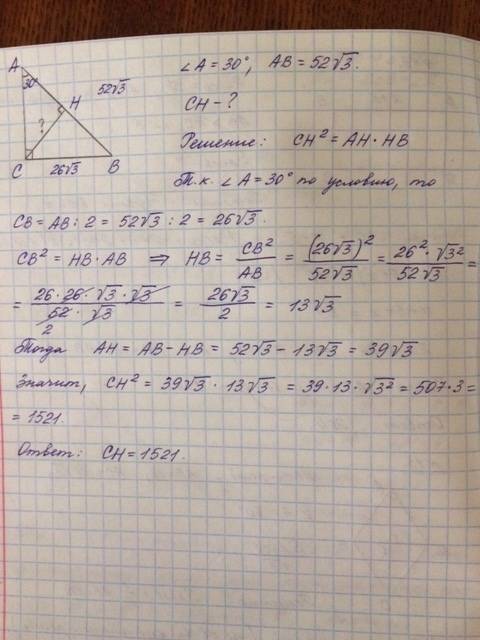 A
30°
52√3
H
?
C
26√3
B
∠A = 30°, AB = 52√3.
CH - ?
Решение: CH² = AH · HB
Т.к. ∠A = 30° по условию, то
CB = AB : 2 = 52√3 : 2 = 26√3.
CB² = HB · AB ⇒ HB = CB²/AB = (26√3)²/52√3 = 26² · √3²/52√3 =
= 26 · 26 · √3 · √3/52 · √3 = 26√3/2 = 13√3
2
Тогда AH = AB - HB = 52√3 - 13√3 = 39√3
Значит, CH² = 39√3 · 13√3 = 39 · 13 · √3² = 507 · 3 =
= 1521.
Ответ: CH = 1521.